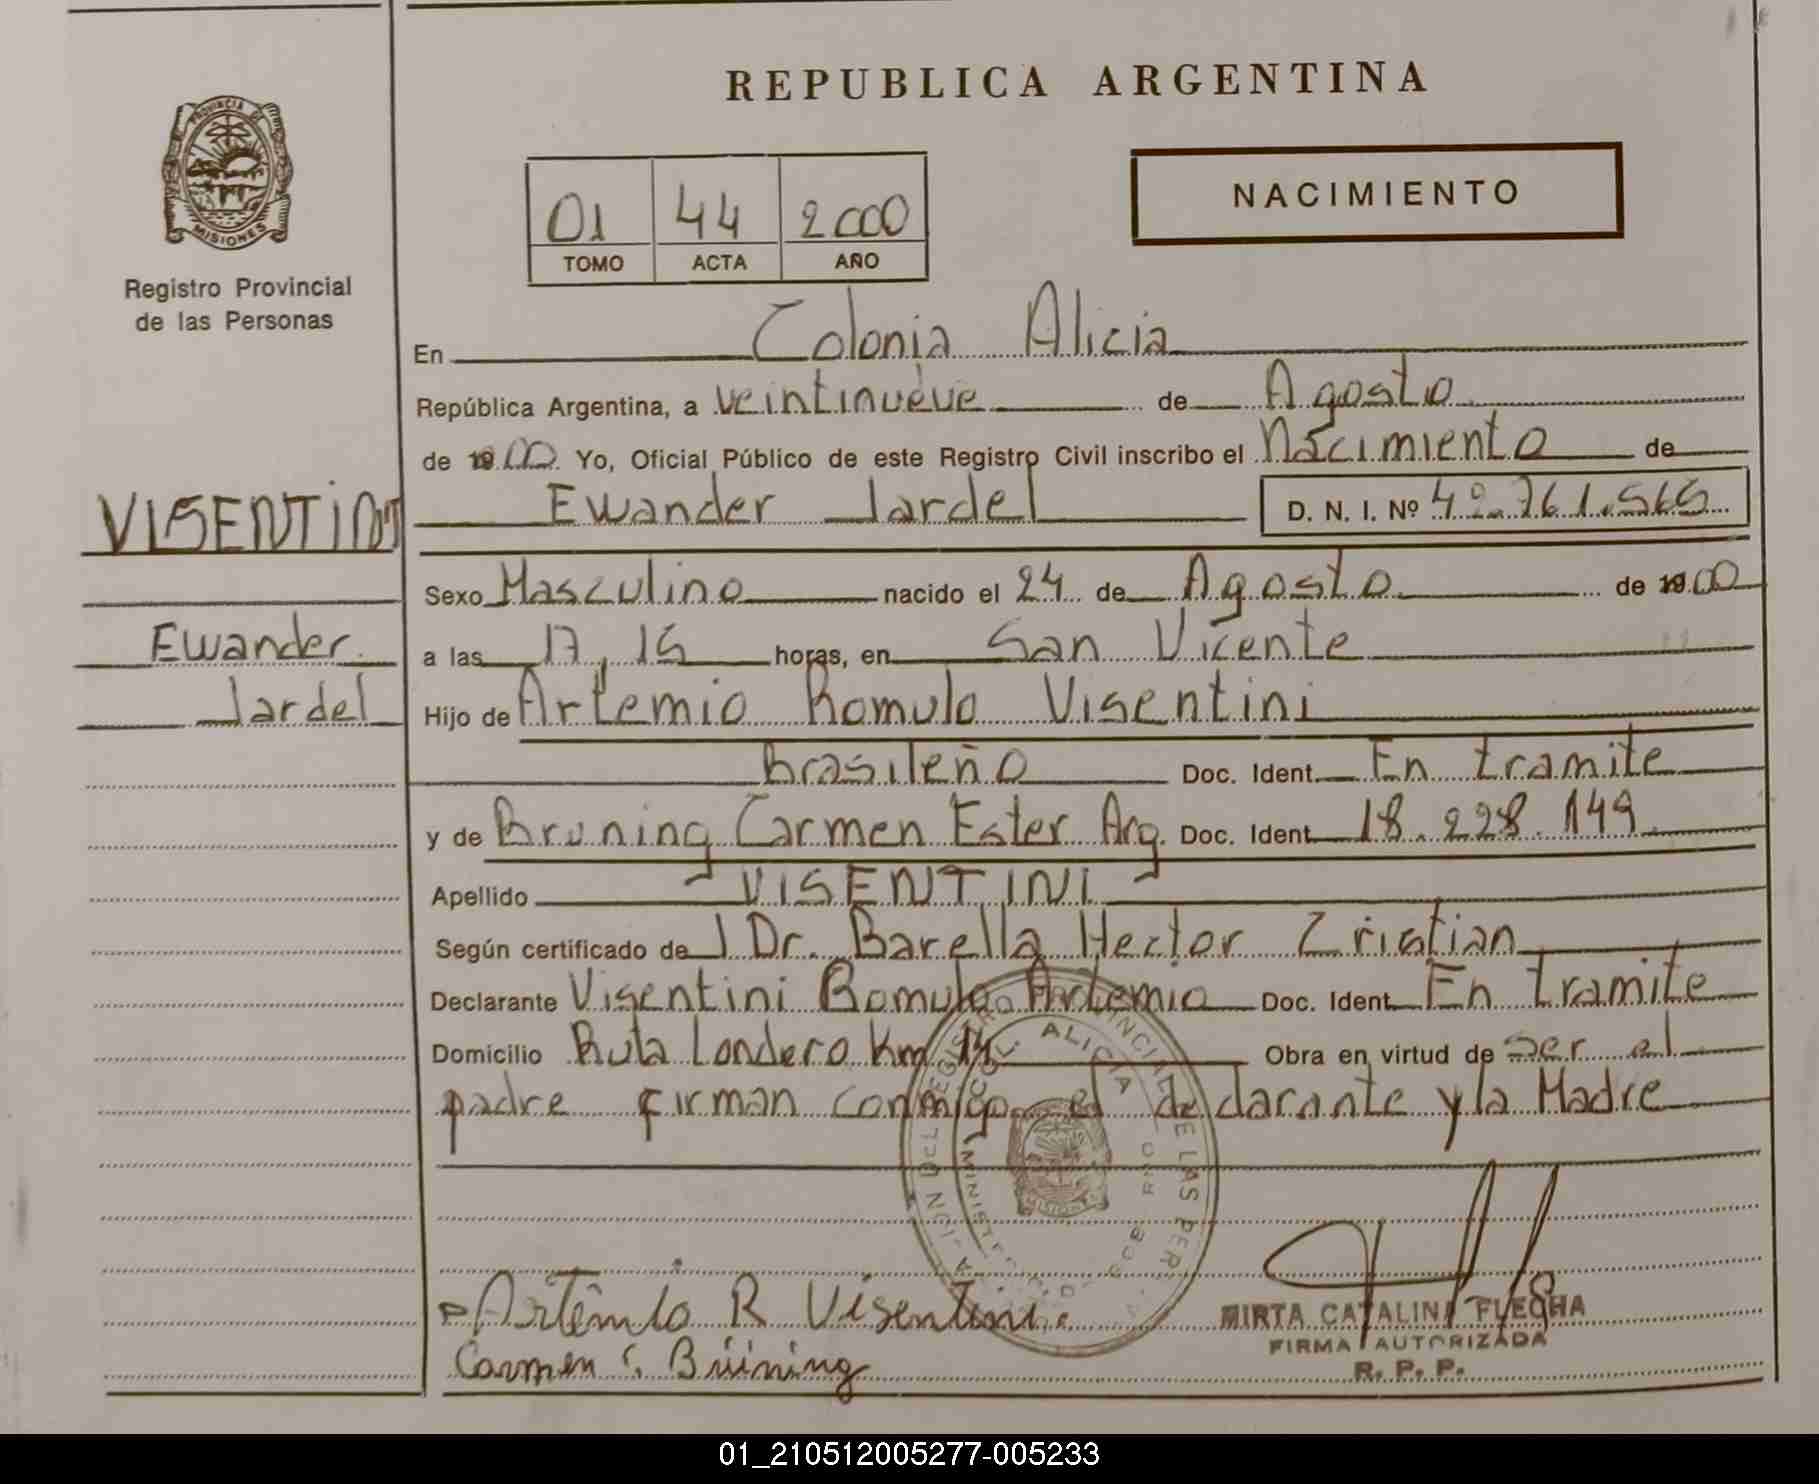 REPUBLICA ARGENTINA
PROVINCIA DE
MISIONES
Registro Provincial
de las Personas
NACIMIENTO
01 44 2000
TOMO ACTA AÑO
En Colonia Alicia
República Argentina, a veintinueve de Agosto
de 1900. Yo, Oficial Público de este Registro Civil inscribo el Nacimiento de
VISENTINI
Ewander Jardel D. N. I. Nº 42.761.565
Sexo Masculino nacido el 24 de Agosto de 1900
Ewander
a las 17,15 horas, en San Vicente
Jardel
Hijo de Artemio Romulo Visentini
Brasileño Doc. Ident. En tramite
y de Bruning Carmen Ester Arg. Doc. Ident. 18.228.149
Apellido VISENTINI
Según certificado de Dr. Barella Hector Cristian
Declarante Visentini Romulo Artemio Doc. Ident. En tramite
Domicilio Ruta Londero Km 14 Obra en virtud de ser el
padre firman conmigo el declarante y la Madre
COL. ALICIA
Artêmio R Visentini
MIRTA CATALINA FLECHA
FIRMA AUTORIZADA
R. P. P.
Carmen E. Brüning
01_210512005277-005233